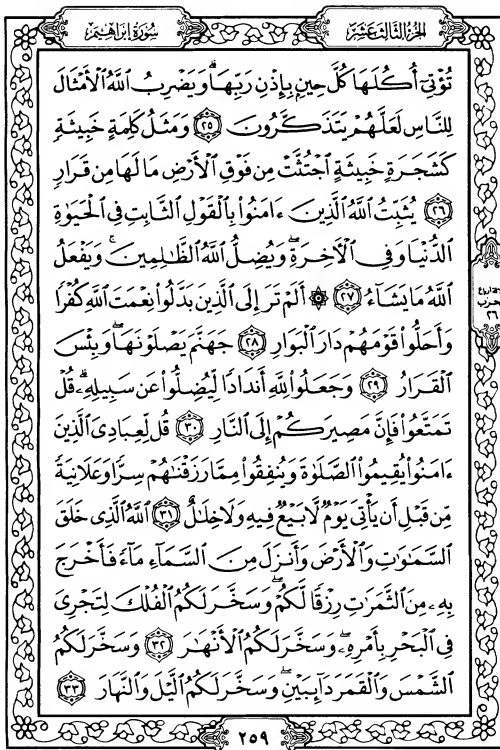 الجزء الثالث عشر
سورة إبراهيم
تُؤْتِىٓ أُكُلَهَا كُلَّ حِينٍۭ بِإِذْنِ رَبِّهَا ۗ وَيَضْرِبُ ٱللَّهُ ٱلْأَمْثَالَ
لِلنَّاسِ لَعَلَّهُمْ يَتَذَكَّرُونَ ٢٥ وَمَثَلُ كَلِمَةٍ خَبِيثَةٍ
كَشَجَرَةٍ خَبِيثَةٍ ٱجْتُثَّتْ مِن فَوْقِ ٱلْأَرْضِ مَا لَهَا مِن قَرَارٍ
٢٦ يُثَبِّتُ ٱللَّهُ ٱلَّذِينَ ءَامَنُوا۟ بِٱلْقَوْلِ ٱلثَّابِتِ فِى ٱلْحَيَوٰةِ
ٱلدُّنْيَا وَفِى ٱلْءَاخِرَةِ ۖ وَيُضِلُّ ٱللَّهُ ٱلظَّـٰلِمِينَ ۚ وَيَفْعَلُ
ٱللَّهُ مَا يَشَآءُ ٢٧ ۞ أَلَمْ تَرَ إِلَى ٱلَّذِينَ بَدَّلُوا۟ نِعْمَتَ ٱللَّهِ كُفْرًا
وَأَحَلُّوا۟ قَوْمَهُمْ دَارَ ٱلْبَوَارِ ٢٨ جَهَنَّمَ يَصْلَوْنَهَا ۖ وَبِئْسَ
ٱلْقَرَارُ ٢٩ وَجَعَلُوا۟ لِلَّهِ أَندَادًا لِّيُضِلُّوا۟ عَن سَبِيلِهِۦ ۗ قُلْ
تَمَتَّعُوا۟ فَإِنَّ مَصِيرَكُمْ إِلَى ٱلنَّارِ ٣٠ قُل لِّعِبَادِىَ ٱلَّذِينَ
ءَامَنُوا۟ يُقِيمُوا۟ ٱلصَّلَوٰةَ وَيُنفِقُوا۟ مِمَّا رَزَقْنَـٰهُمْ سِرًّا وَعَلَانِيَةً
مِّن قَبْلِ أَن يَأْتِىَ يَوْمٌ لَّا بَيْعٌ فِيهِ وَلَا خِلَـٰلٌ ٣١ ٱللَّهُ ٱلَّذِى خَلَقَ
ٱلسَّمَـٰوَٰتِ وَٱلْأَرْضَ وَأَنزَلَ مِنَ ٱلسَّمَآءِ مَآءً فَأَخْرَجَ
بِهِۦ مِنَ ٱلثَّمَرَٰتِ رِزْقًا لَّكُمْ ۖ وَسَخَّرَ لَكُمُ ٱلْفُلْكَ لِتَجْرِىَ
فِى ٱلْبَحْرِ بِأَمْرِهِۦ ۖ وَسَخَّرَ لَكُمُ ٱلْأَنْهَـٰرَ ٣٢ وَسَخَّرَ لَكُمُ
ٱلشَّمْسَ وَٱلْقَمَرَ دَآئِبَيْنِ ۖ وَسَخَّرَ لَكُمُ ٱلَّيْلَ وَٱلنَّهَارَ ٣٣
حزب
٢٦
٢٥٩